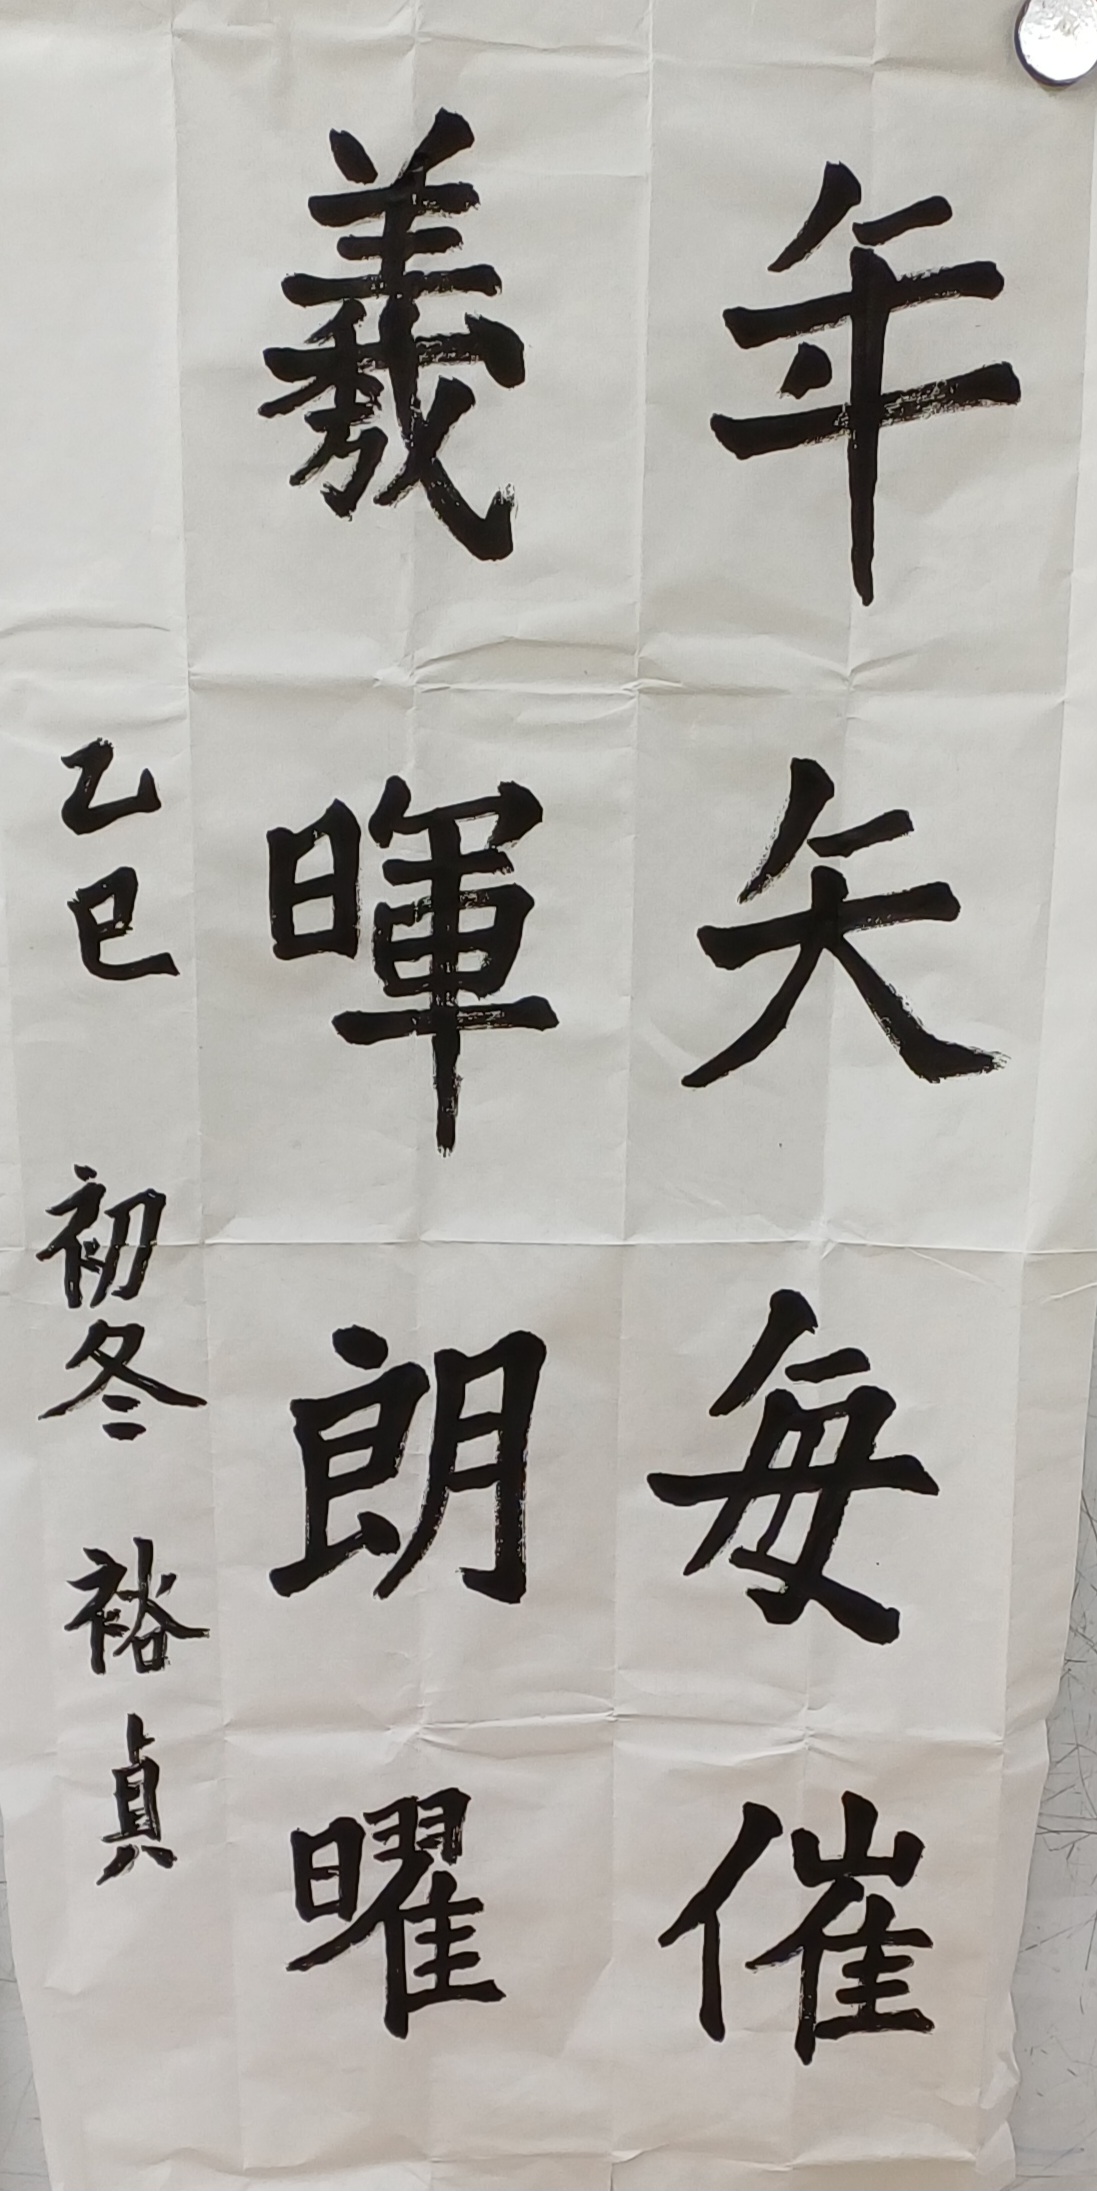 年矢每催
羲暉朗曜
乙巳 初冬 裕貞